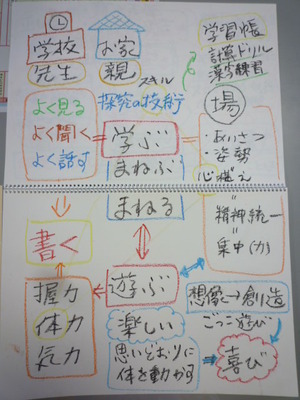 学校
お家
学習帳
先生
親
スキル
計算ドリル
漢字練習
よく見る
よく聞く
よく話す
探究の技術
場
学ぶ
まねぶ
まねる
・あいさつ
・姿勢
心構え
精神統一
集中(力)
書く
握力
体力
気力
遊ぶ
楽しい
思いどおりに
体を動かす
想像→創造
ごっこ遊び
喜び